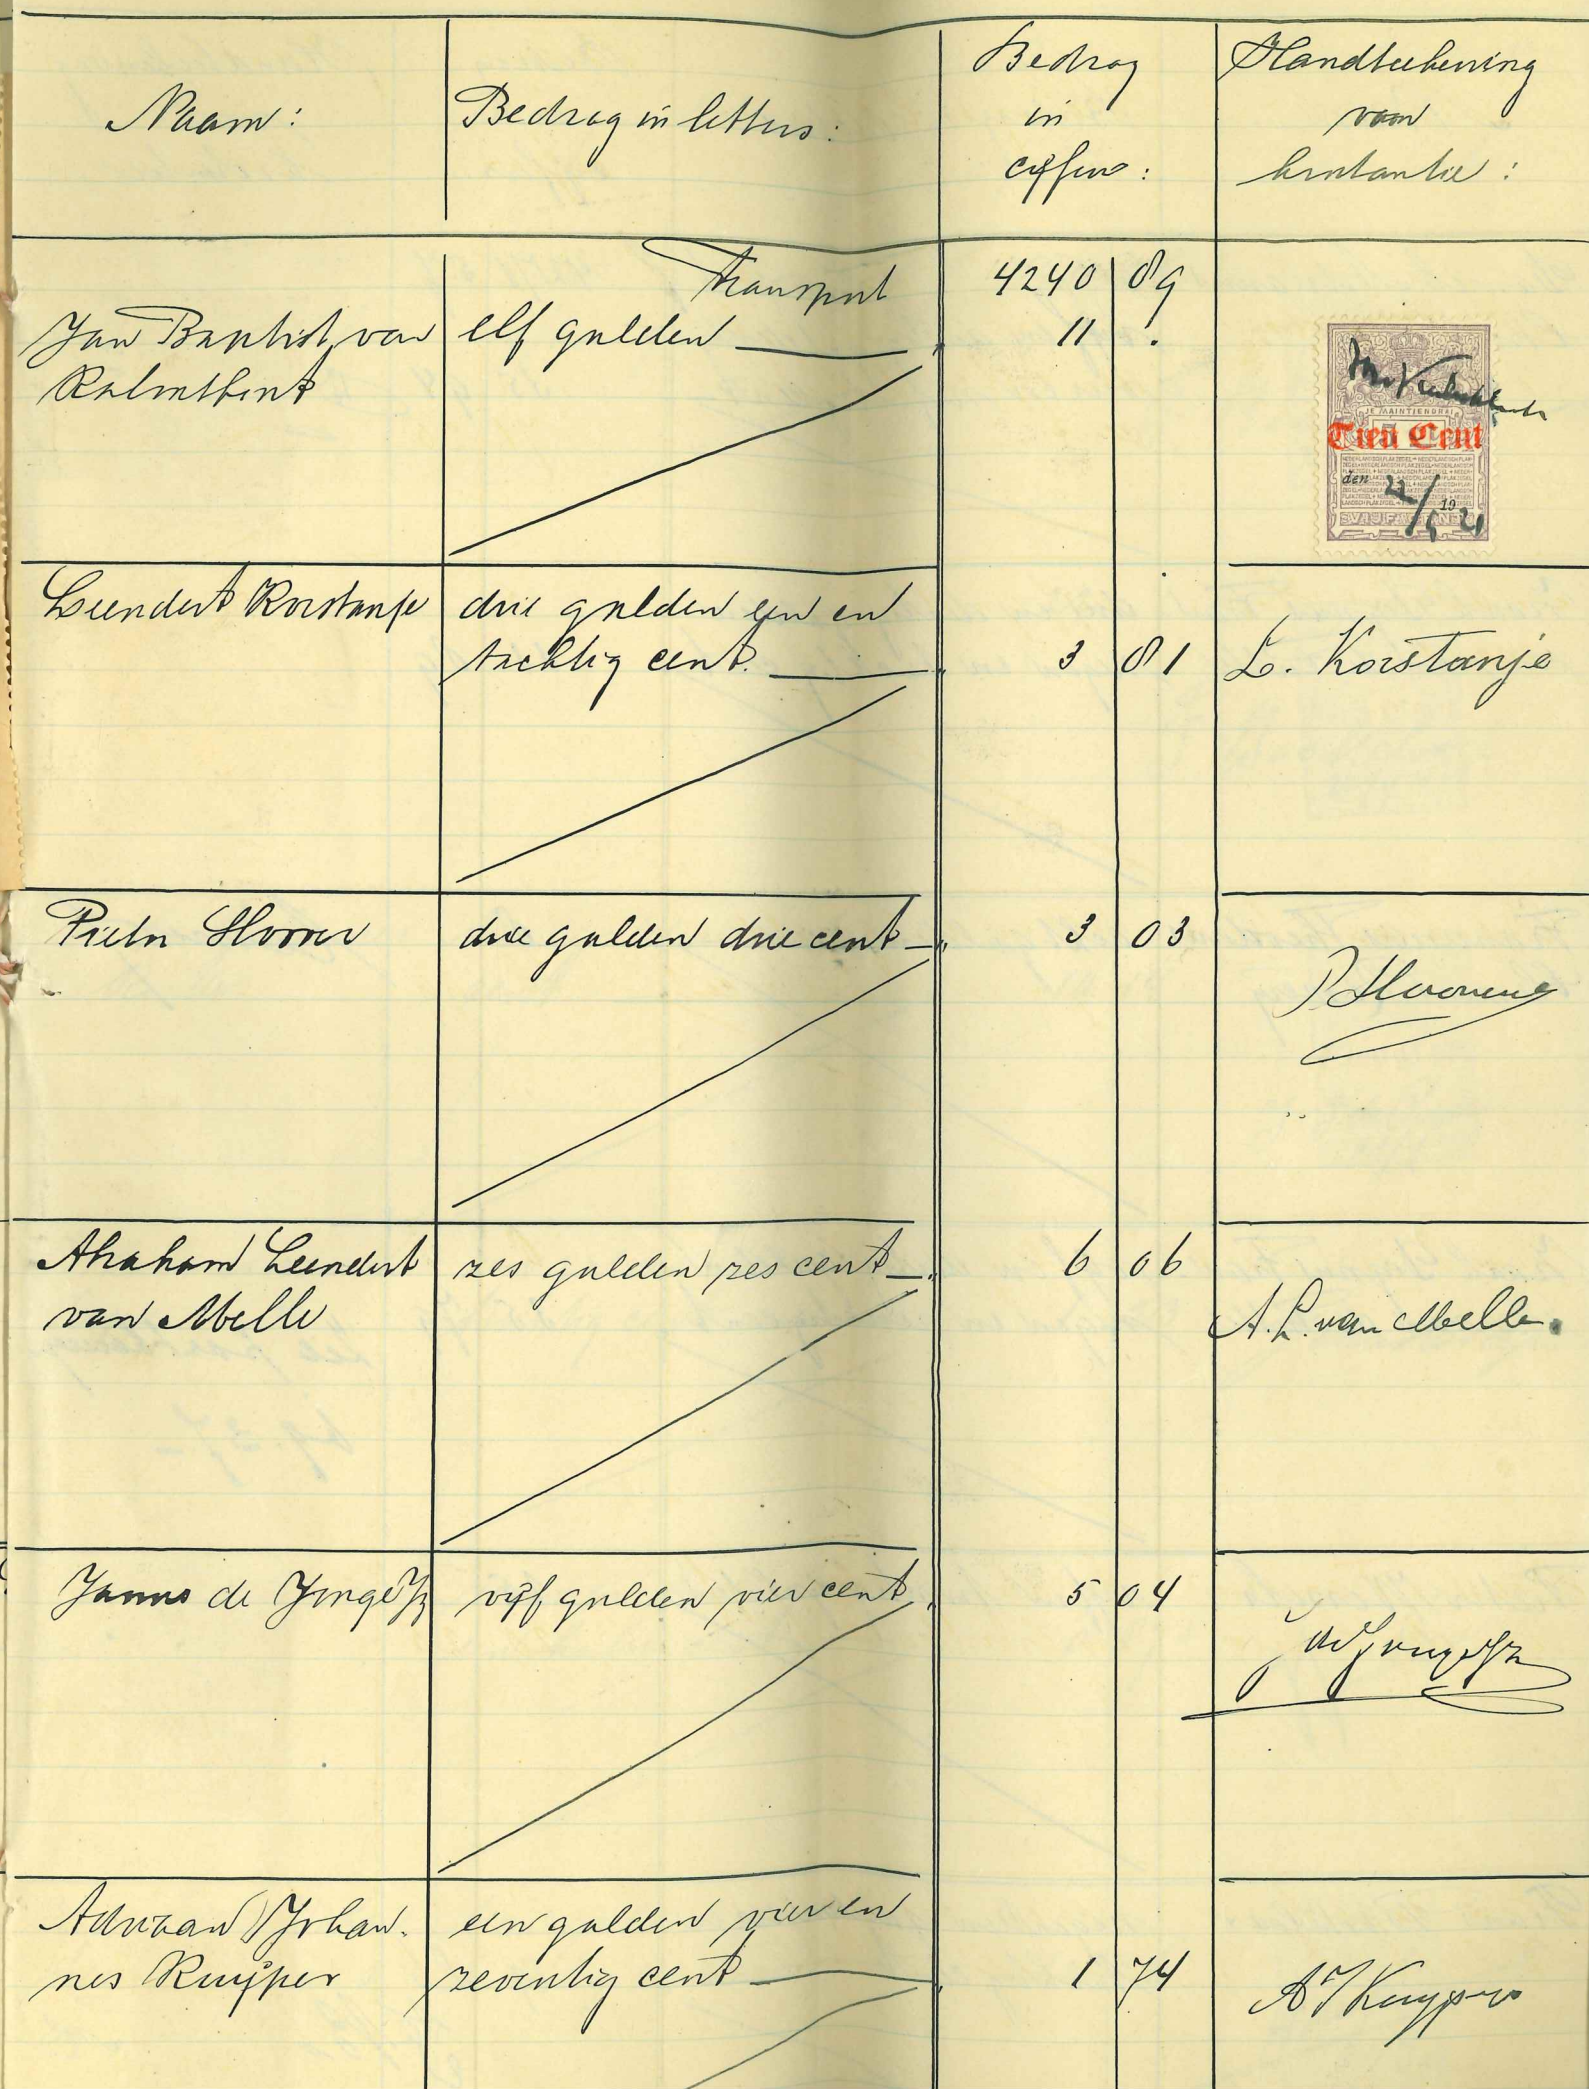 Naam:
Bedrag in letters:
Bedrag
in
cijfers:
Handteekening
voor
kwitantie:
Transport
4240 89
Jan Baptist van
elf gulden
11 .
JE MAINTIENDRAI
Tien Cent
den 22/ 19 21
Leendert Korstanje
drie gulden een en
tachtig cent.
3 81
L. Korstanje
Pieter
drie gulden drie cent
3 03
Abraham Leendert
van Melle
zes gulden zes cent
6 06
A. L. van Melle.
Janus de Jonge Jz
vijf gulden vier cent
5 04
J de Jonge Jz
Adriaan Johan-
nes Kuijper
een gulden vier en
zeventig cent
1 74
A J Kuyper